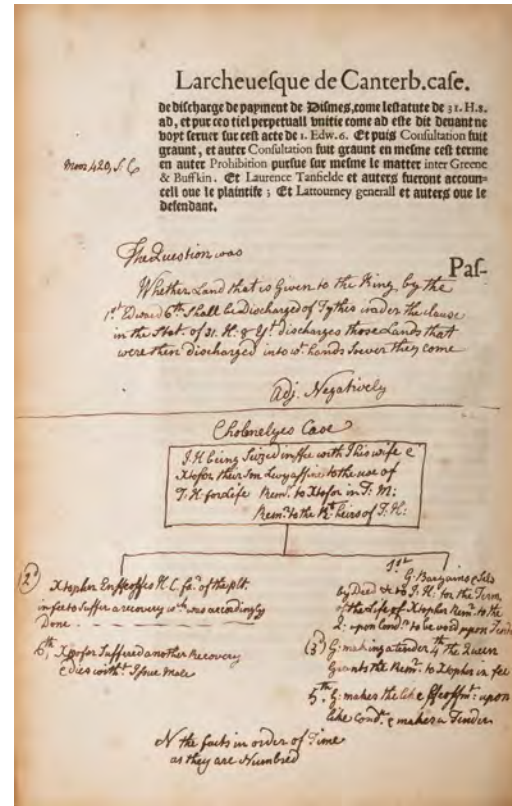 Larcheuesque de Canterb.case.
de discharge de payment de Dismes, come lestatute de 31. H.8.
ad, et pur ceo tiel perpetuall vnitie come ad este dit deuant ne
voyt seruer sur cest acte de 1. Edw. 6. Et puis Consultation fuit
graunt, et auter Consultation fuit graunt en mesme cest terme
en auter Prohibition pursue sur mesme le matter inter Greene
& Buffkin. Et Laurence Tanfielde et auters fueront accoun-
cell oue le plaintife ; Et Lattourney generall et auters oue le
defendant.
Moor 420, S. C
Pas-
The Question was
Whether Land that is Given to the King, by the
1st Edward 6th Shall be Discharged of Tythes under the clause
in the Stat. of 31. H. 8 yt. discharges those Lands that
were then discharged into wt. hands soever they come
Adj. Negatively
Cholmelyes Case
J. H being Seized in ffee with J his wife &
Xtofor their Son Levy a ffine to the use of
J. H for Life Remr. to Xtofor in T. M:
Remr. to the Rt. heirs of J. H:
2d Xtopher Enffeoffes H. C. fa. of the plt.
in fee to Suffer a recovery wch. was accordingly
Done
6th, Xtofor Suffered another Recovery
& dies witht. Issue Male
1st G. Bargains & Sells
by Deed to J. H: for the Term
of the Life of Xtopher Remr. to the
Q: upon Condn. to be void upon Tender
(3d) G: making a tender 4th the Queen
Grants the Remr. to Xtopher in fee
5th G: makes the like ffeoffmt: upon
like Condn. & makes a Tender
N the facts in order of Time
as they are Numbred